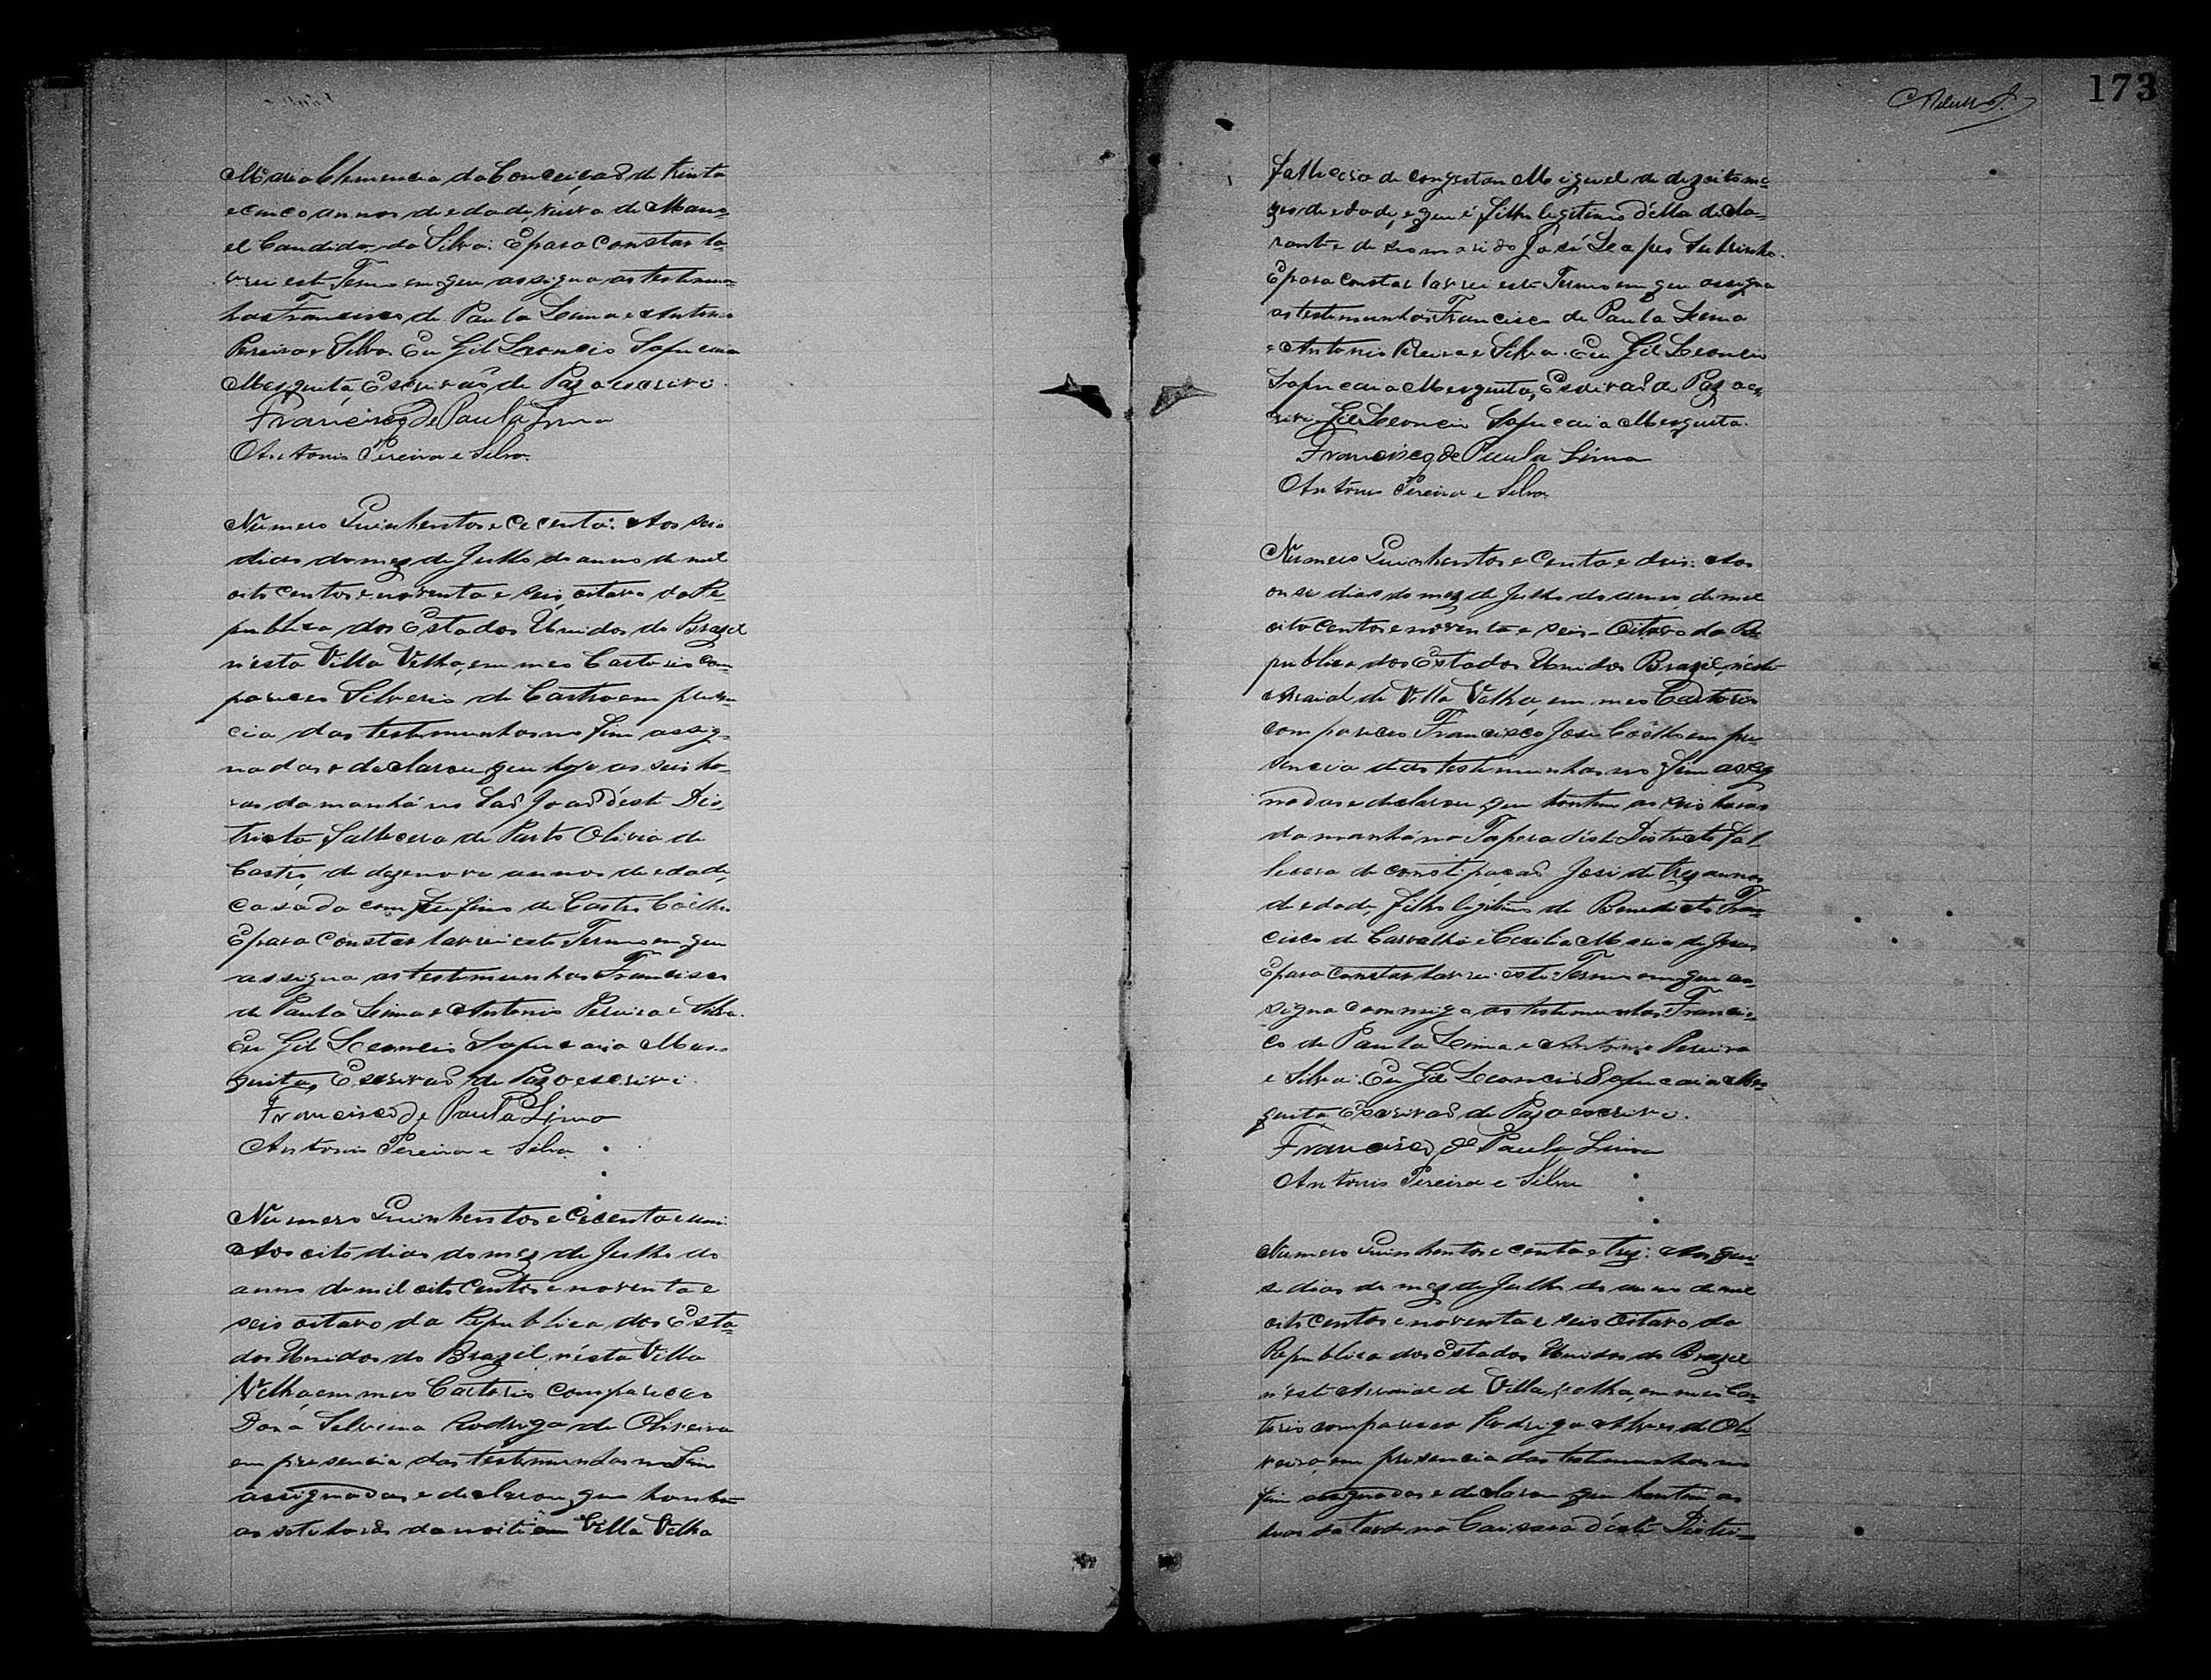 Maria Clemencia da Conceição de trinta
e cinco annos de edade, viuva de Mano-
el Candido da Silva. E para constar la-
vrei este Termo em que assigna as testemu-
has Francisco de Paula Lima e Antonio
Pereira e Silva. Eu Gil Leoncio Sapucaia
Mesquita, Escrivaõ de Paz o escrivi.
Francisco de Paula Lima
Antonio Pereira e Silva.
Numero Quinhentos e Cecenta: Aos seis
dias do mez de Julho do anno de mil
oito centos e noventa e seis, oitavo da Re-
publica dos Estados Unidos do Brazil
n'esta Villa Velha, em meo Cartorio com-
pareceo Silverio de Castro em presen-
cia das testemunhas no fim assig-
nadas e declarou que hoje as seis ho-
ras da manhã no Saõ Joaõ d'este Dis-
tricto, fallecera de Parto Olivia de
Castro, de dezenove annos de edade,
casada com Rufino de Castro Coêlho
E para constar lavrei este Termo em que
assigna as testemunhas Francisco
de Paula Lima e Antonio Pereira e Silva.
Eu Gil Leoncio Sapucaia Mes-
quita, Escrivaõ de Paz o escrivi.
Francisco de Paula Lima
Antonio Pereira e Silva
Numero Quinhentos e Cecenta e um:
Aos oito dias do mez de Julho do
anno de mil oito centos e noventa e
seis oitavo da Republica dos Esta-
dos Unidos do Brazil, n'esta Villa
Velha em meo Cartorio compareceo
Dona Silvina Rodrigo de Oliveira
em presencia das testemunhas no fim
assignadas e declarou que hontem
as sete horas da noite em Villa Velha
173
fallecera de congestão Miguel de dezoito me-
zes de edade, e que é filho legitimo d'élla decla-
rante e de seo marido José Lopes Sobrinho.
E para constar lavrei este Termo em que assigna
as testemunhas Francisco de Paula Lima
e Antonio Pereira e Silva. Eu Gil Leoncio
Sapucaia Mesquita, Escrivaõ de Paz o es-
crivi. Gil Leoncio Sapucaia Mesquita.
Francisco de Paula Lima
Antonio Pereira e Silva
Numero Quinhentos e Centa e dois: Aos
onse dias do mez de Julho do anno de mil
oito centos e noventa e seis - Oitavo da Re-
publica dos Estados Unidos Brazil, n'éste
Arraial de Villa Velha, em meo Cartorio
compareceo Francisco José Coêlho em pre-
sencia das testemunhas no fim assig-
nadas e declarou que hontem as seis horas
da manhã na Tapera d'éste Districto fal-
lecera de constipaçaõ José de trez annos
de edade, filho legitimo de Benedicto Fran-
cisco de Carvalho e Cecilia Maria de Jesus
E para constar lavrei este Termo em que as-
signa commigo as testemunhas Francis-
co de Paula Lima e Antonio Pereira
e Silva. Eu Gil Leoncio Sapucaia Mes-
quita Escrivaõ de Paz o escrivi.
Francisco de Paula Lima
Antonio Pereira e Silva
Numero Quinhentos e centa e trez: Aos quin-
se dias do mez de Julho do anno de mil
oito centos e noventa e seis Oitavo da
Republica dos Estados Unidos do Brazil
n'éste Arraial de Villa Velha, em meo Car-
torio compareceo Rodrigo Alves de Oli-
veira, em presencia das testemunhas no
fim assignadas e declarou que hontem as
duas da tarde na Caissara d'éste Distri-